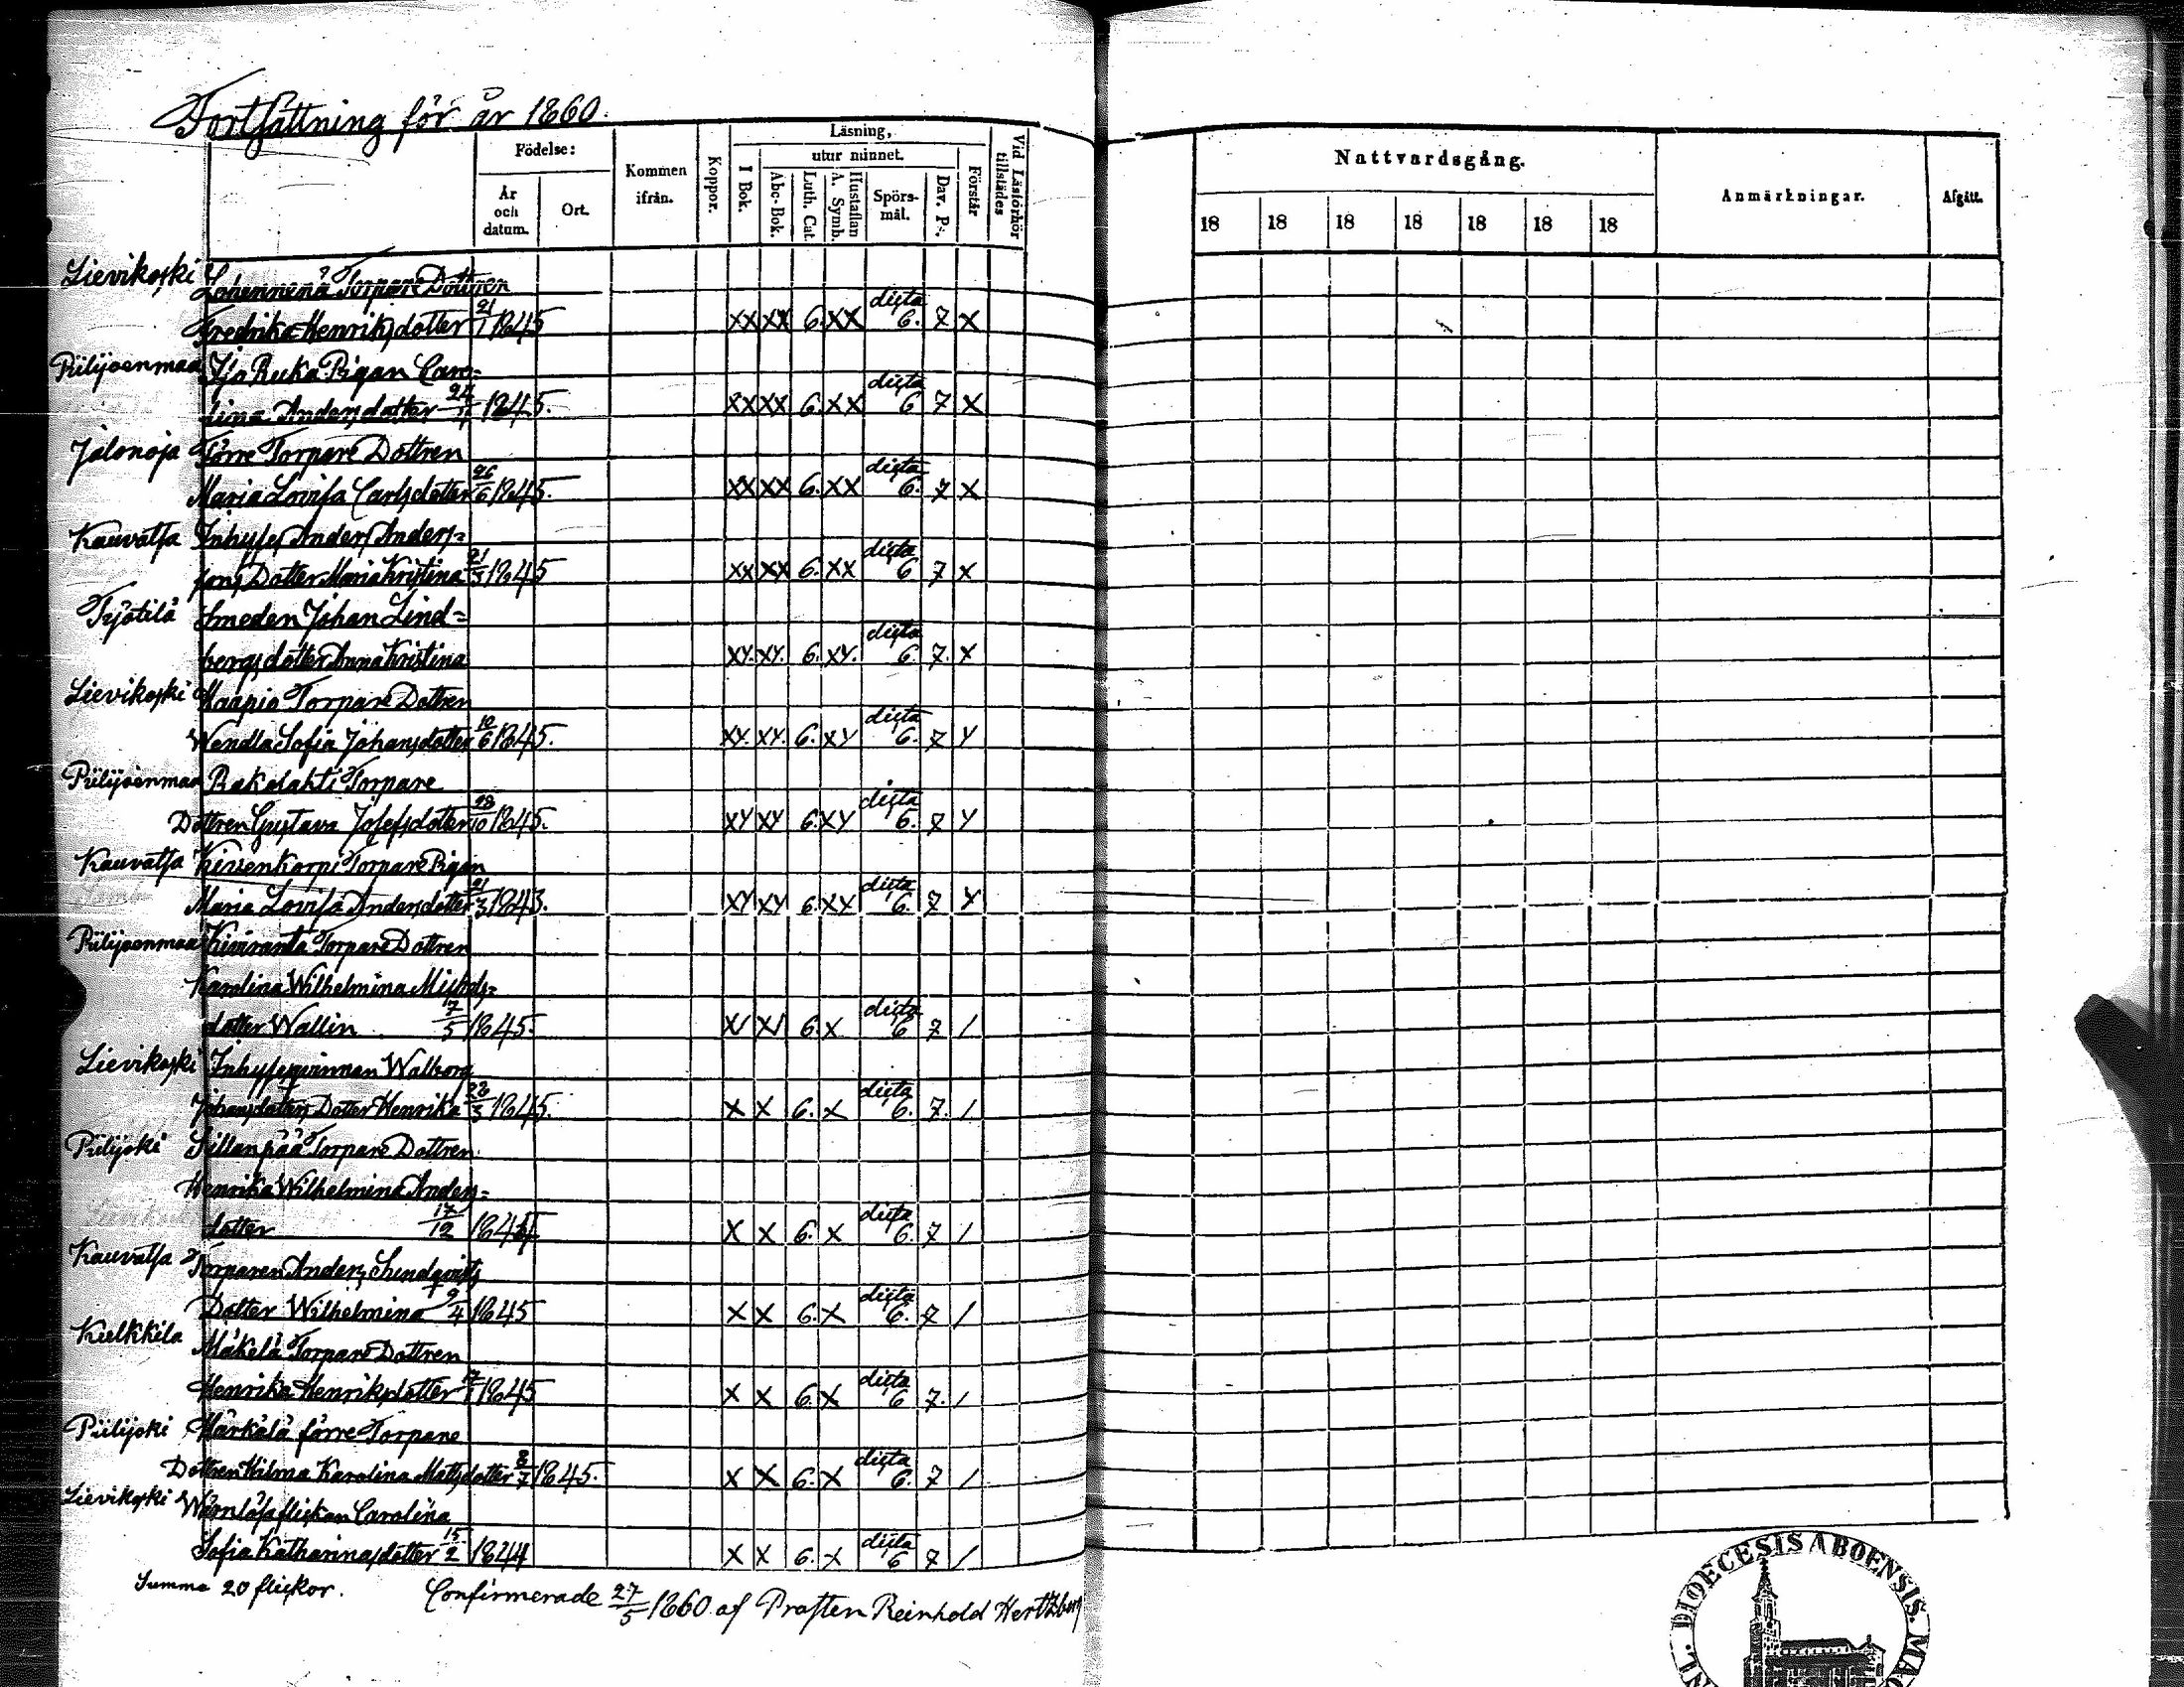 Fortsättning för år 1860.
Födelse:
År och datum.
Ort.
Kommen ifrån.
Koppor.
Läsning,
utur minnet.
I Bok.
Abc-Bok.
Luth. Cat.
Hustaflan A. Symb.
Spörs-mål.
Dav. Ps.
Förstår
Vid Läsförhör tillstädes
Nattvardsgång.
18 18 18 18 18 18 18
Anmärkningar.
Afgått.
Lievikoski Torpare Dottren
Fredrika Henriksdotter 21/1 1845 XX XX 6. XX dista 6. 7 X
Piilijoenmaa Iso Ruka Pigan Caro=
lina Andersdotter 1845. XX XX 6. XX dista 6 7 X
Jalonoja Förre Torpare Dottren
Maria Lovisa Carlsdotter 26/6 1845. XX XX 6. XX dista 6. 7 X
Kauvatsa Inhyses Anders Anders=
sons Dotter Maria Kristina 21/3 1845 XX XX 6. XX dista 6 7 X
Työtilä Smeden Johan Lind=
bergs dotter Anna Kristina XY. XY. 6. XY. dista 6. 7. X
Lievikoski Haapio Torpare Dottren
Wendla Sofia Johansdotter 10/6 1845. XY. XY. 6. XY dista 6. 7 Y
Piilijoenmaa Rakolahti Torpare
Dottren Gustava Josefsdotter 28/10 1845. XY XY 6. XY dista 6. 7 Y
Kauvatsa Kissenkorpi Torpare Pigan
Maria Lovisa Andersdotter 21/3 1843. XY XY 6. XY dista 6. 7 Y
Piilijoenmaa Kiviranta Torpare Dottren
Karolina Wilhelmina Mickels=
dotter Wallin 17/5 1845. X/ X/ 6. X dista 6 7 /
Lievikoski Inhysesqvinnan Walborg
Johansdotters Dotter Henrika 22/3 1845. X X 6. X dista 6. 7. /
Piilijoki Sillanpää Torpare Dottren
Henrika Wilhelmina Anders=
dotter 17/12 1845 X X 6. X dista 6. 7 /
Kauvatsa Torparen Anders Lundqvists
Dotter Wilhelmina 9/4 1845 X X 6. X dista 6. 7 /
Kulkkila Mäkelä Torpare Dottren
Henrika Henriksdotter 1845 X X 6. X dista 6 7. /
Piilijoki Härkälä förre Torpare
Dottren Hilma Karolina Mattsdotter 8/7 1845. X X 6. X dista 6. 7 /
Lievikoski Wärnlösa flickan Carolina
Sofia Katharinasdotter 15/2 1844 X X 6. X dista 6 7 /
Summa 20 flickor. Confirmerade 27/5 1860 af Prosten Reinhold Hertzberg
DIOECESIS ABOENSIS.